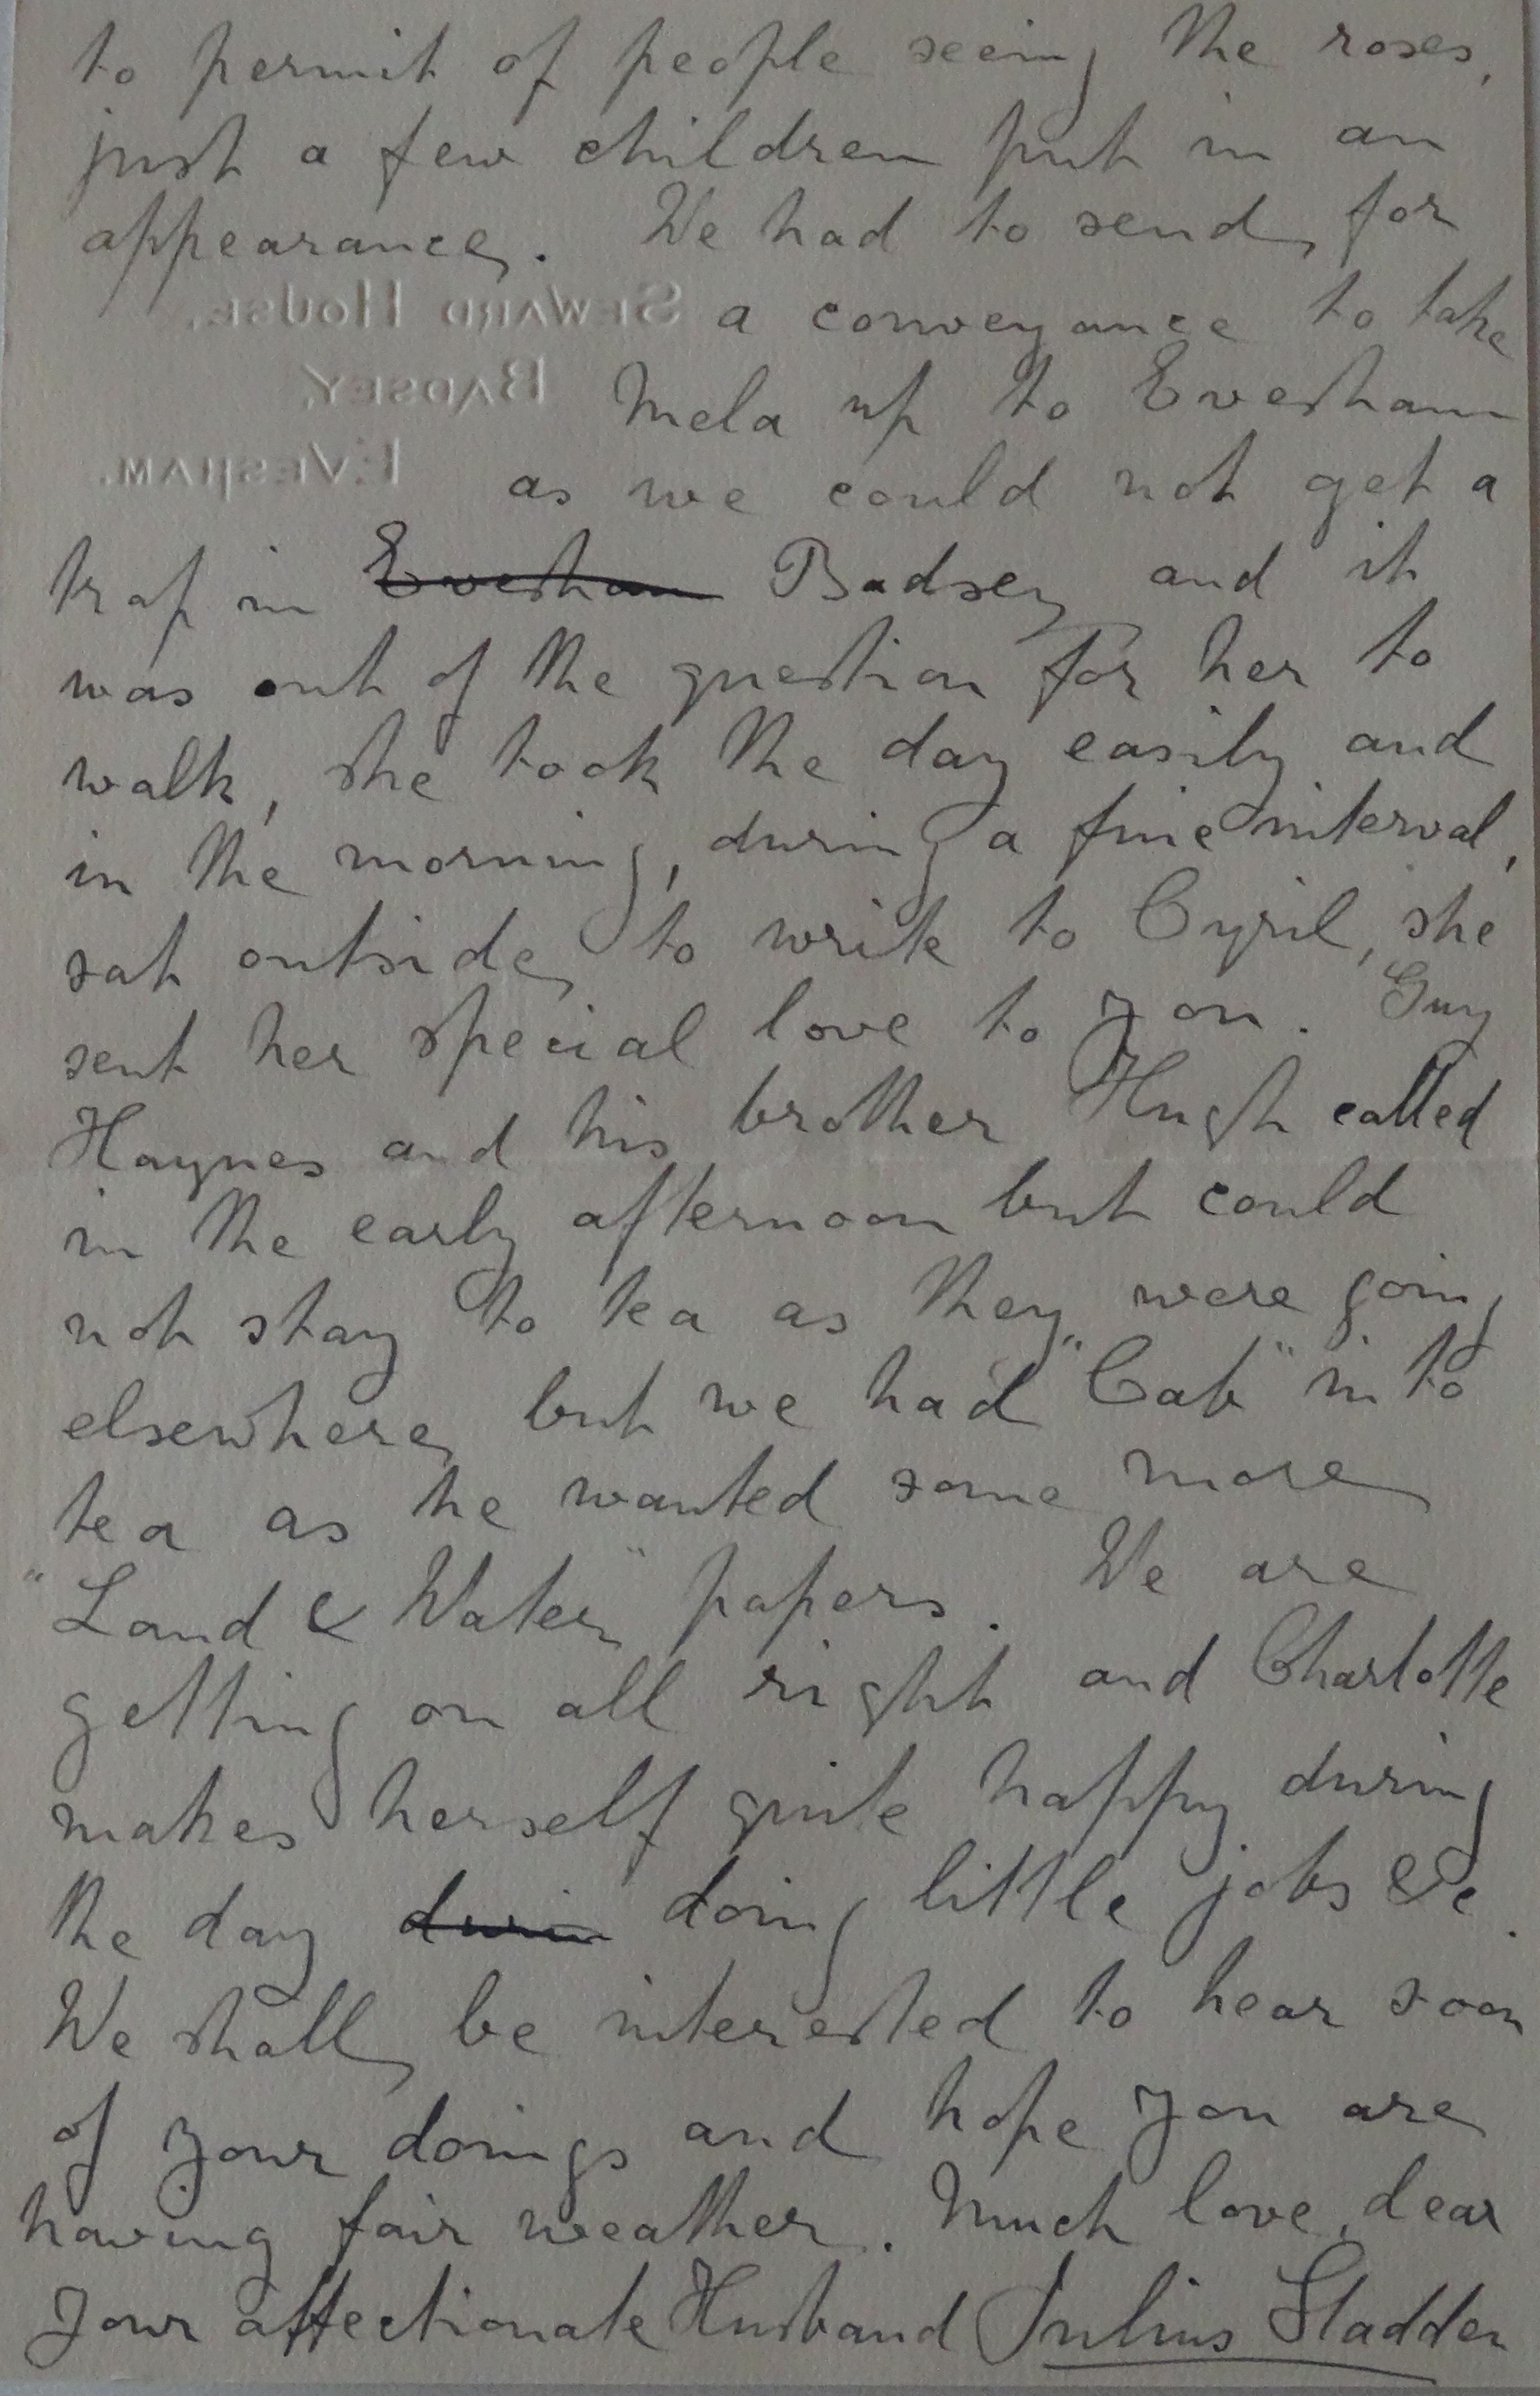 to permit of people seeing the roses,
just a few children put in an
appearance. We had to send for
SEWARD HOUSE, a conveyance to take
BADSEY, Mela up to Evesham
EVESHAM. as we could not get a
trap in Evesham Badsey and it
was out of the question for her to
walk, she took the day easily and
in the morning, during a fine interval,
sat outside to write to Cyril, she
sent her special love to you. Guy
Haynes and his brother Hugh called
in the early afternoon but could
not stay to tea as they were going
elsewhere but we had "Cab" in to
tea as he wanted some more
"Land & Water" papers. We are
getting on all right and Charlotte
makes herself quite happy during
the day durin doing little jobs &c.
We shall be interested to hear soon
of your doings and hope you are
having fair weather. Much love, dear
Your affectionate Husband Julius Sladden